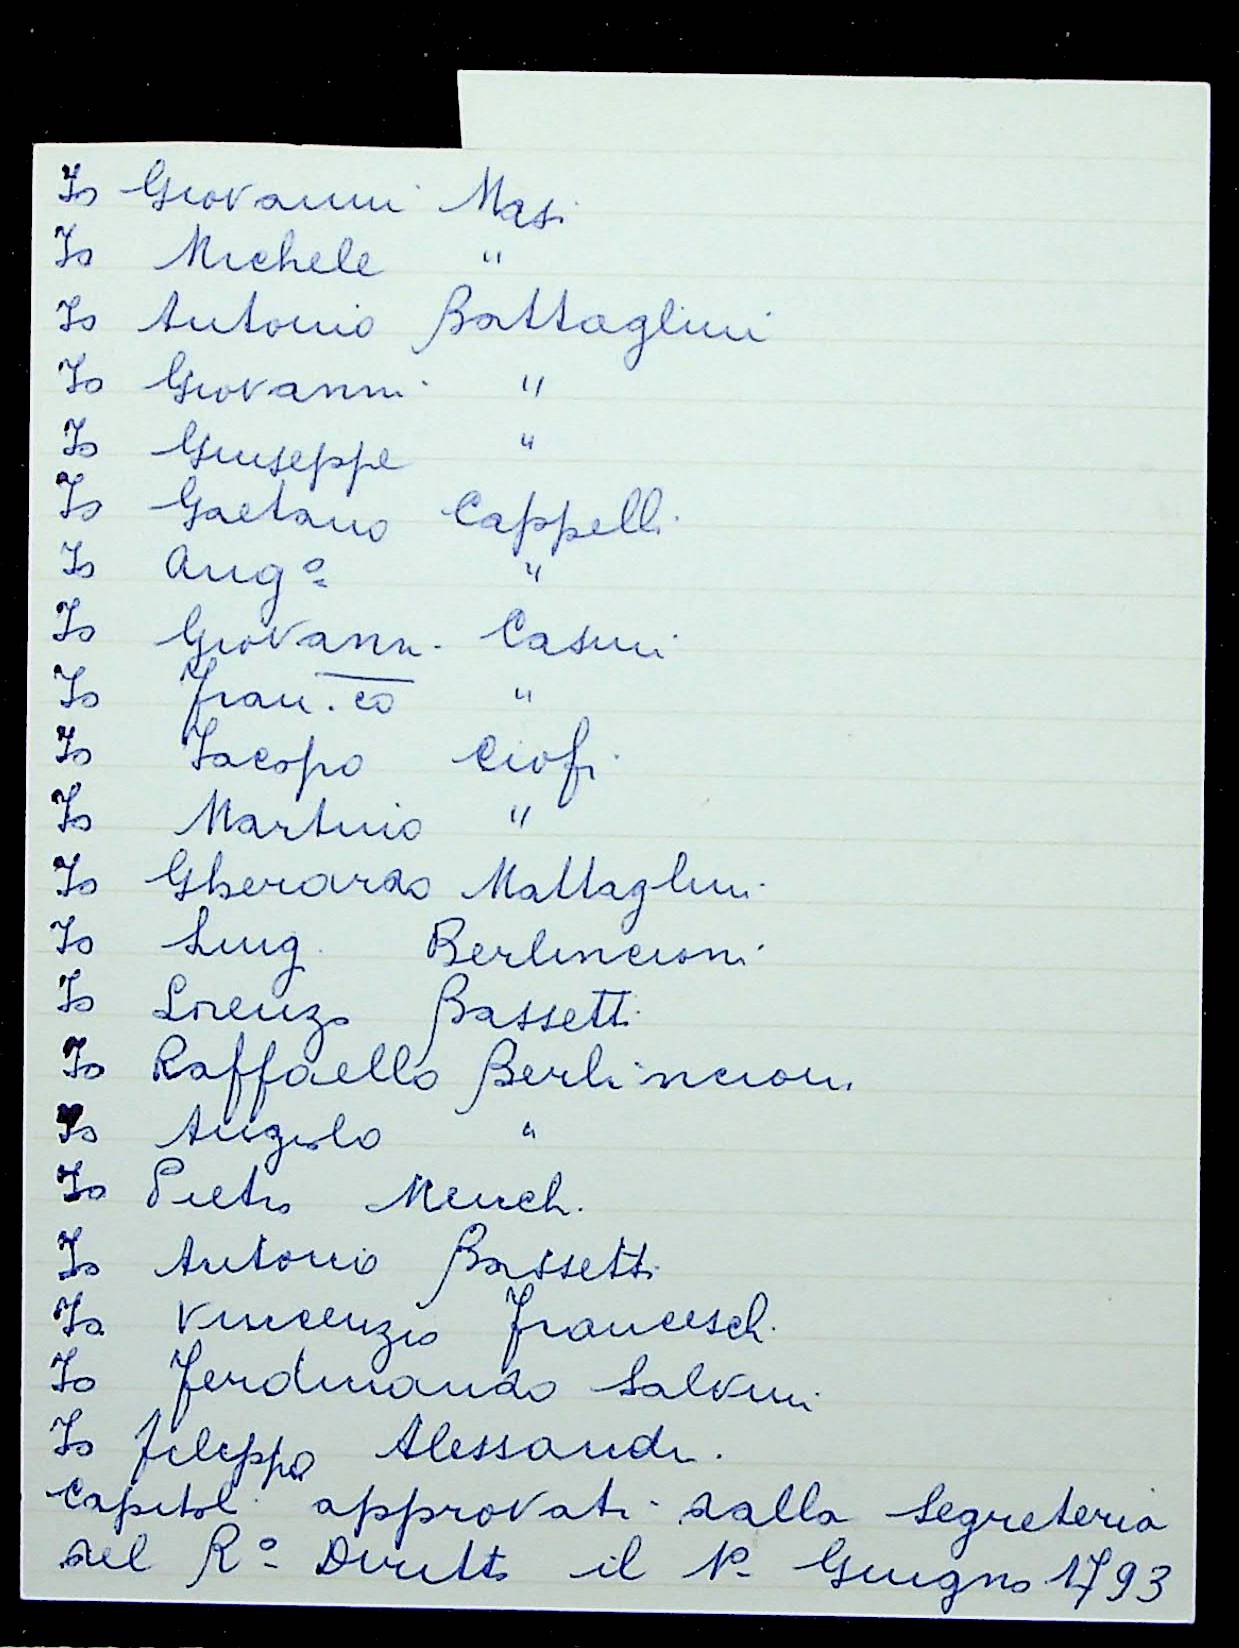 Io Giovanni Masi
Io Michele "
Io Antonio Battaglini
Io Giovanni "
Io Giuseppe "
Io Gaetano Cappelli
Io Augº "
Io Giovanni Casini
Io Fran.co "
Io Iacopo Ciofi
Io Martino "
Io Gherardo Mattaglini
Io Luigi Berlincioni
Io Lorenzo Bassetti
Io Raffaello Berlincioni
Io Angiolo "
Io Pietro
Io Antonio Bassetti
Io Vincenzio Franceschi
Io Ferdinando Salvini
Io Filippo Alessandri
Capitoli approvati dalla Segreteria
del Rº Diritto il Pº Giugno 1793